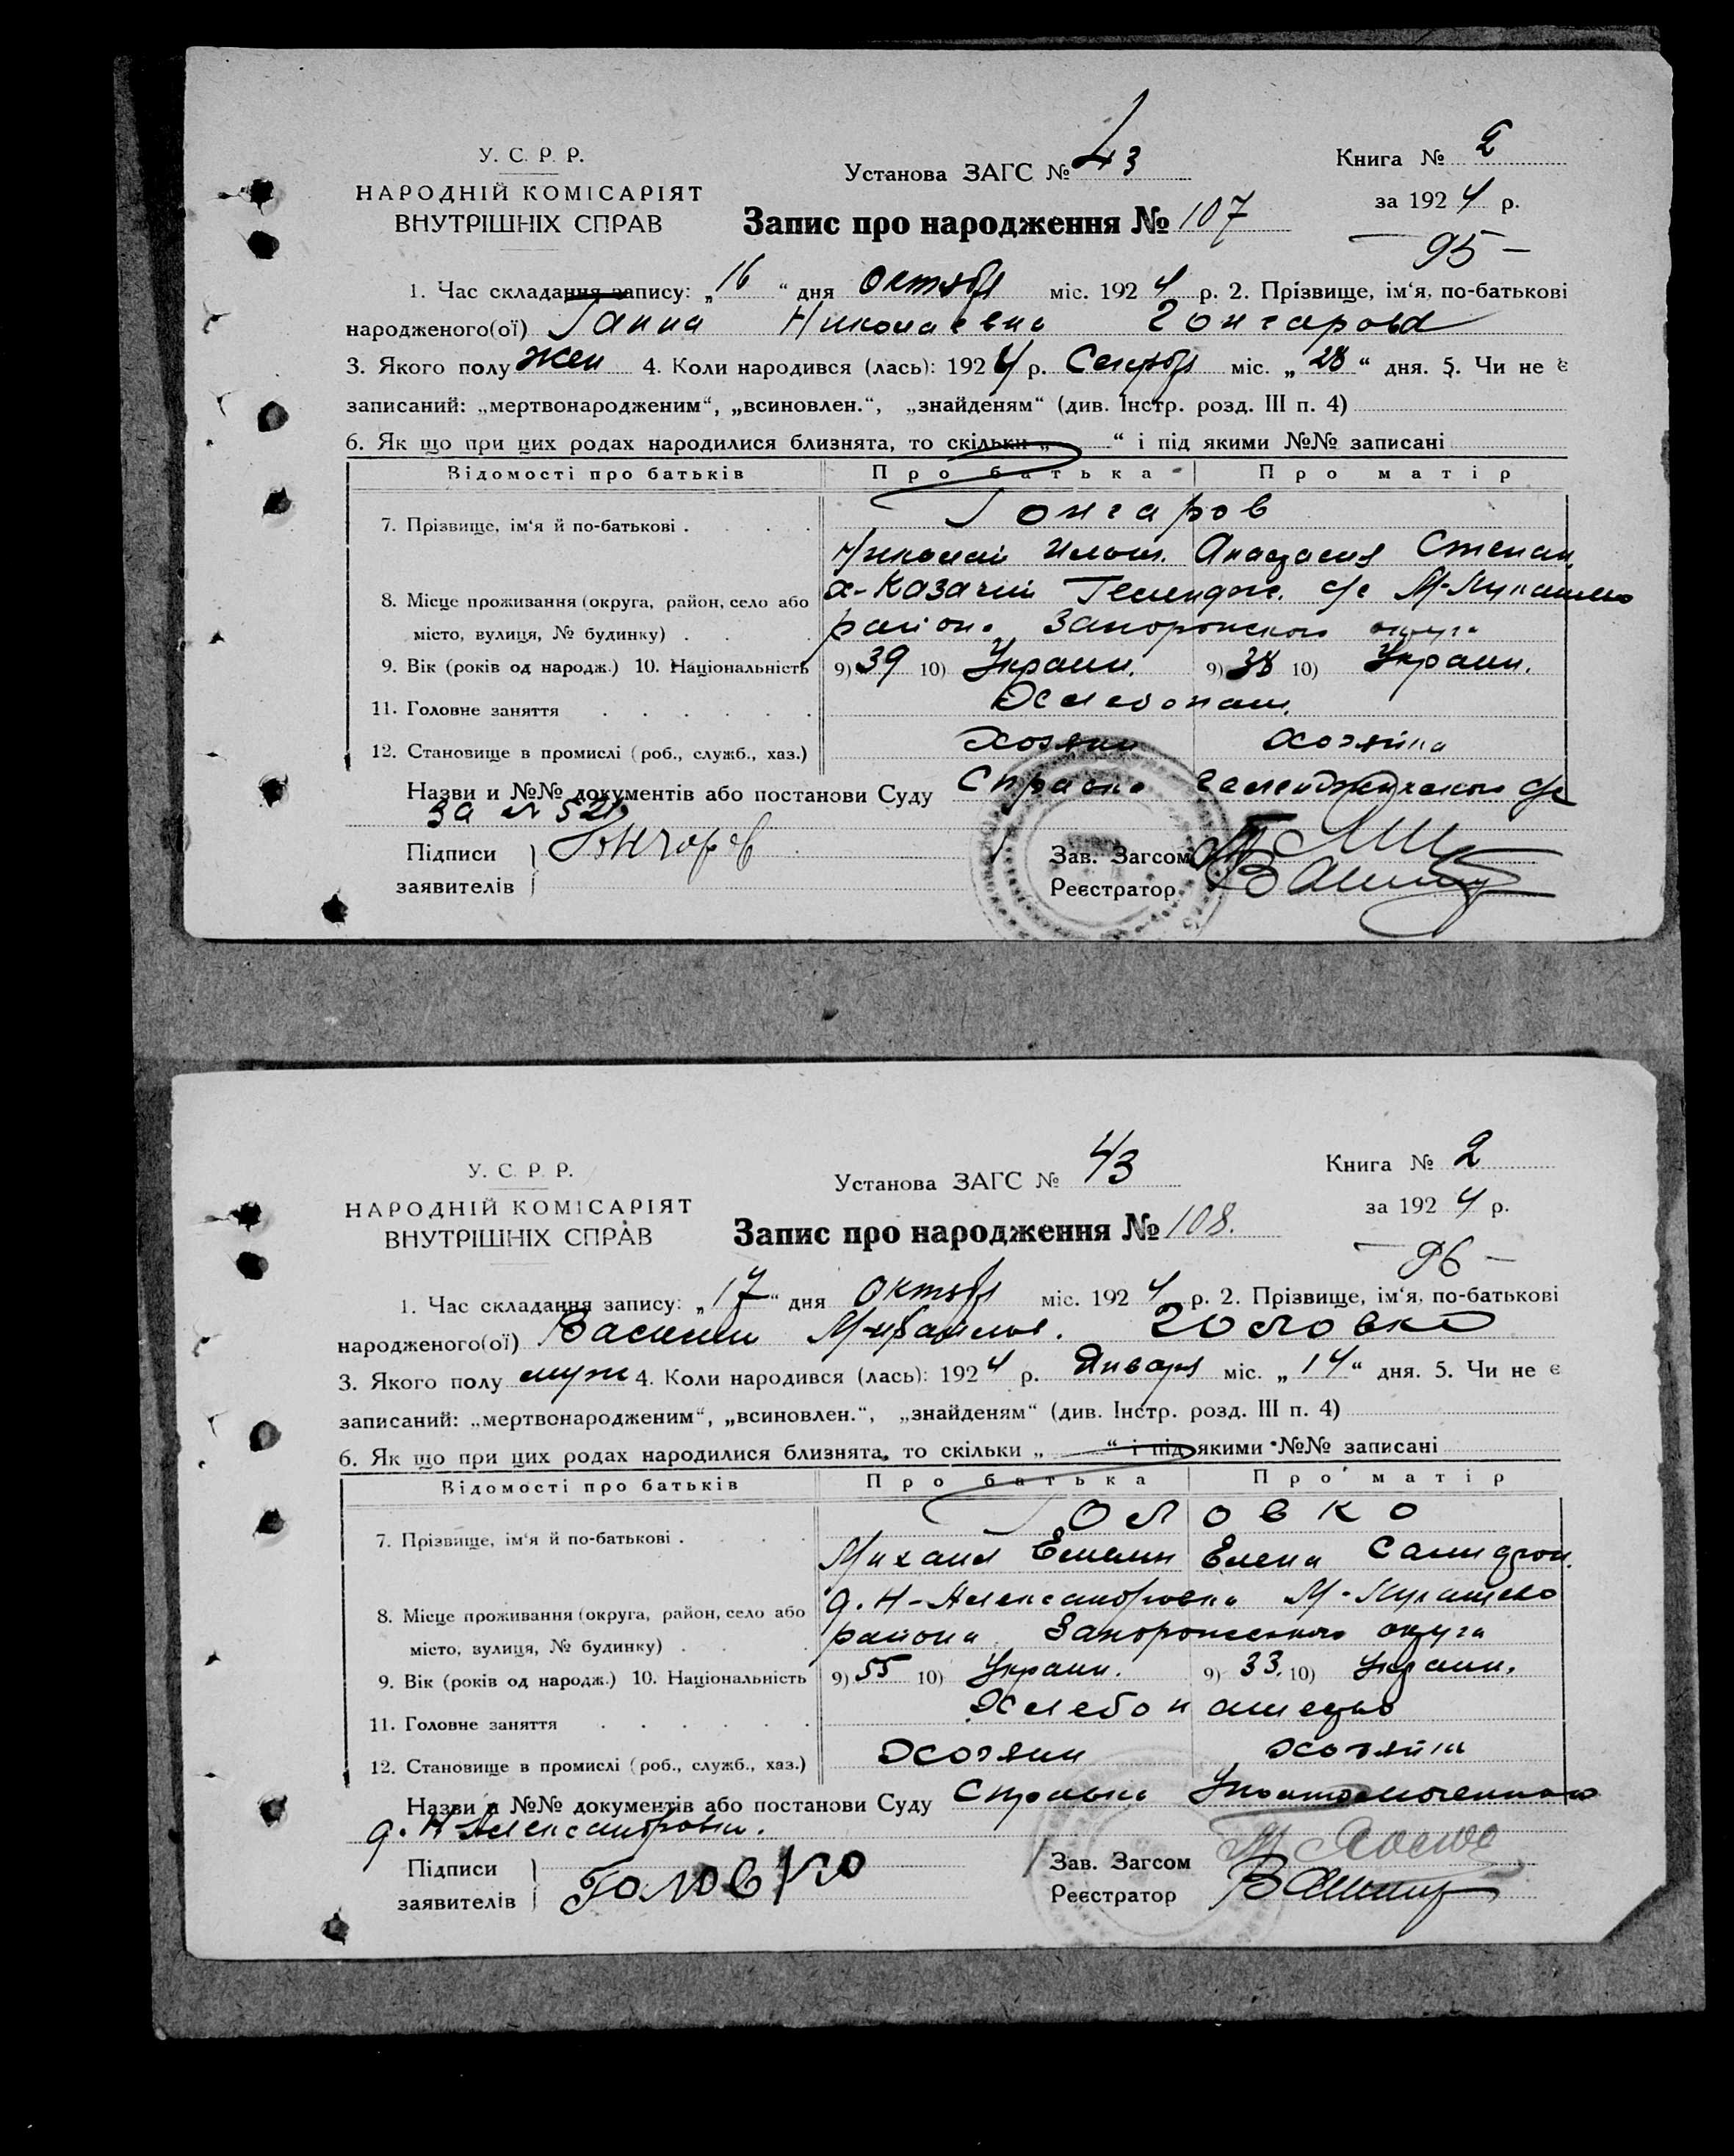 У. С. Р. Р.
НАРОДНІЙ КОМІСАРІЯТ
ВНУТРІШНІХ СПРАВ
Установа ЗАГС № 43
Книга № 2
за 1924 р.
Запис про народження № 107
— 95 —
1. Час складання запису: „16“ дня октября міс. 1924 р. 2. Прізвище, ім‘я, по-батькові
народженого(ої) Ганна Николаевна Гончарова
3. Якого полу жен 4. Коли народився (лась): 1924 р. Сентября міс. „28“ дня. 5. Чи не є
записаний: „мертвонародженим“, „всиновлен.“, „знайденям“ (див. Інстр. розд. III п. 4)
6. Як що при цих родах народилися близнята, то скільки „ “ і під якими №№ записані
Відомості про батьків Про батька Про матір
7. Прізвище, ім‘я й по-батькові . Гончаров
Николай Анастасия Степан.
8. Місце проживання (округа, район, село або х-Казачий с/с М-Лукашево
місто, вулиця, № будинку) . района Запорожского округа
9. Вік (років од народж.) 10. Національність 9) 39 10) Украин. 9) 38 10) Украин.
11. Головне заняття Хлебопаш.
12. Становище в промислі (роб., служб., хаз.) Хозяин Хозяйка
Назви и №№ документів або постанови Суду Справка с/с
за № 521
Підписи заявителів Гончаров
Зав. Загсом
Реєстратор
У. С. Р. Р.
НАРОДНІЙ КОМІСАРІЯТ
ВНУТРІШНІХ СПРАВ
Установа ЗАГС № 43
Книга № 2
за 1924 р.
Запис про народження № 108.
— 96 —
1. Час складання запису: „17“ дня октября міс. 1924 р. 2. Прізвище, ім‘я, по-батькові
народженого(ої) Василий Михайлов. Головко
3. Якого полу муж 4. Коли народився (лась): 1924 р. Января міс. „14“ дня. 5. Чи не є
записаний: „мертвонародженим“, „всиновлен.“, „знайденям“ (див. Інстр. розд. III п. 4)
6. Як що при цих родах народилися близнята, то скільки „ “ і під якими №№ записані
Відомості про батьків Про батька Про матір
7. Прізвище, ім‘я й по-батькові . Головко
Михаил Емельян Елена
8. Місце проживання (округа, район, село або д. Н-Александровка М-Лукашево
місто, вулиця, № будинку) . района Запорожского округа
9. Вік (років од народж.) 10. Національність 9) 55 10) Украин. 9) 33. 10) Украин.
11. Головне заняття Хлебопашество
12. Становище в промислі (роб., служб., хаз.) Хозяин хозяйка
Назви и №№ документів або постанови Суду Справка Уполномоченного
д. Н-Александровки.
Підписи заявителів Головко
Зав. Загсом
Реєстратор